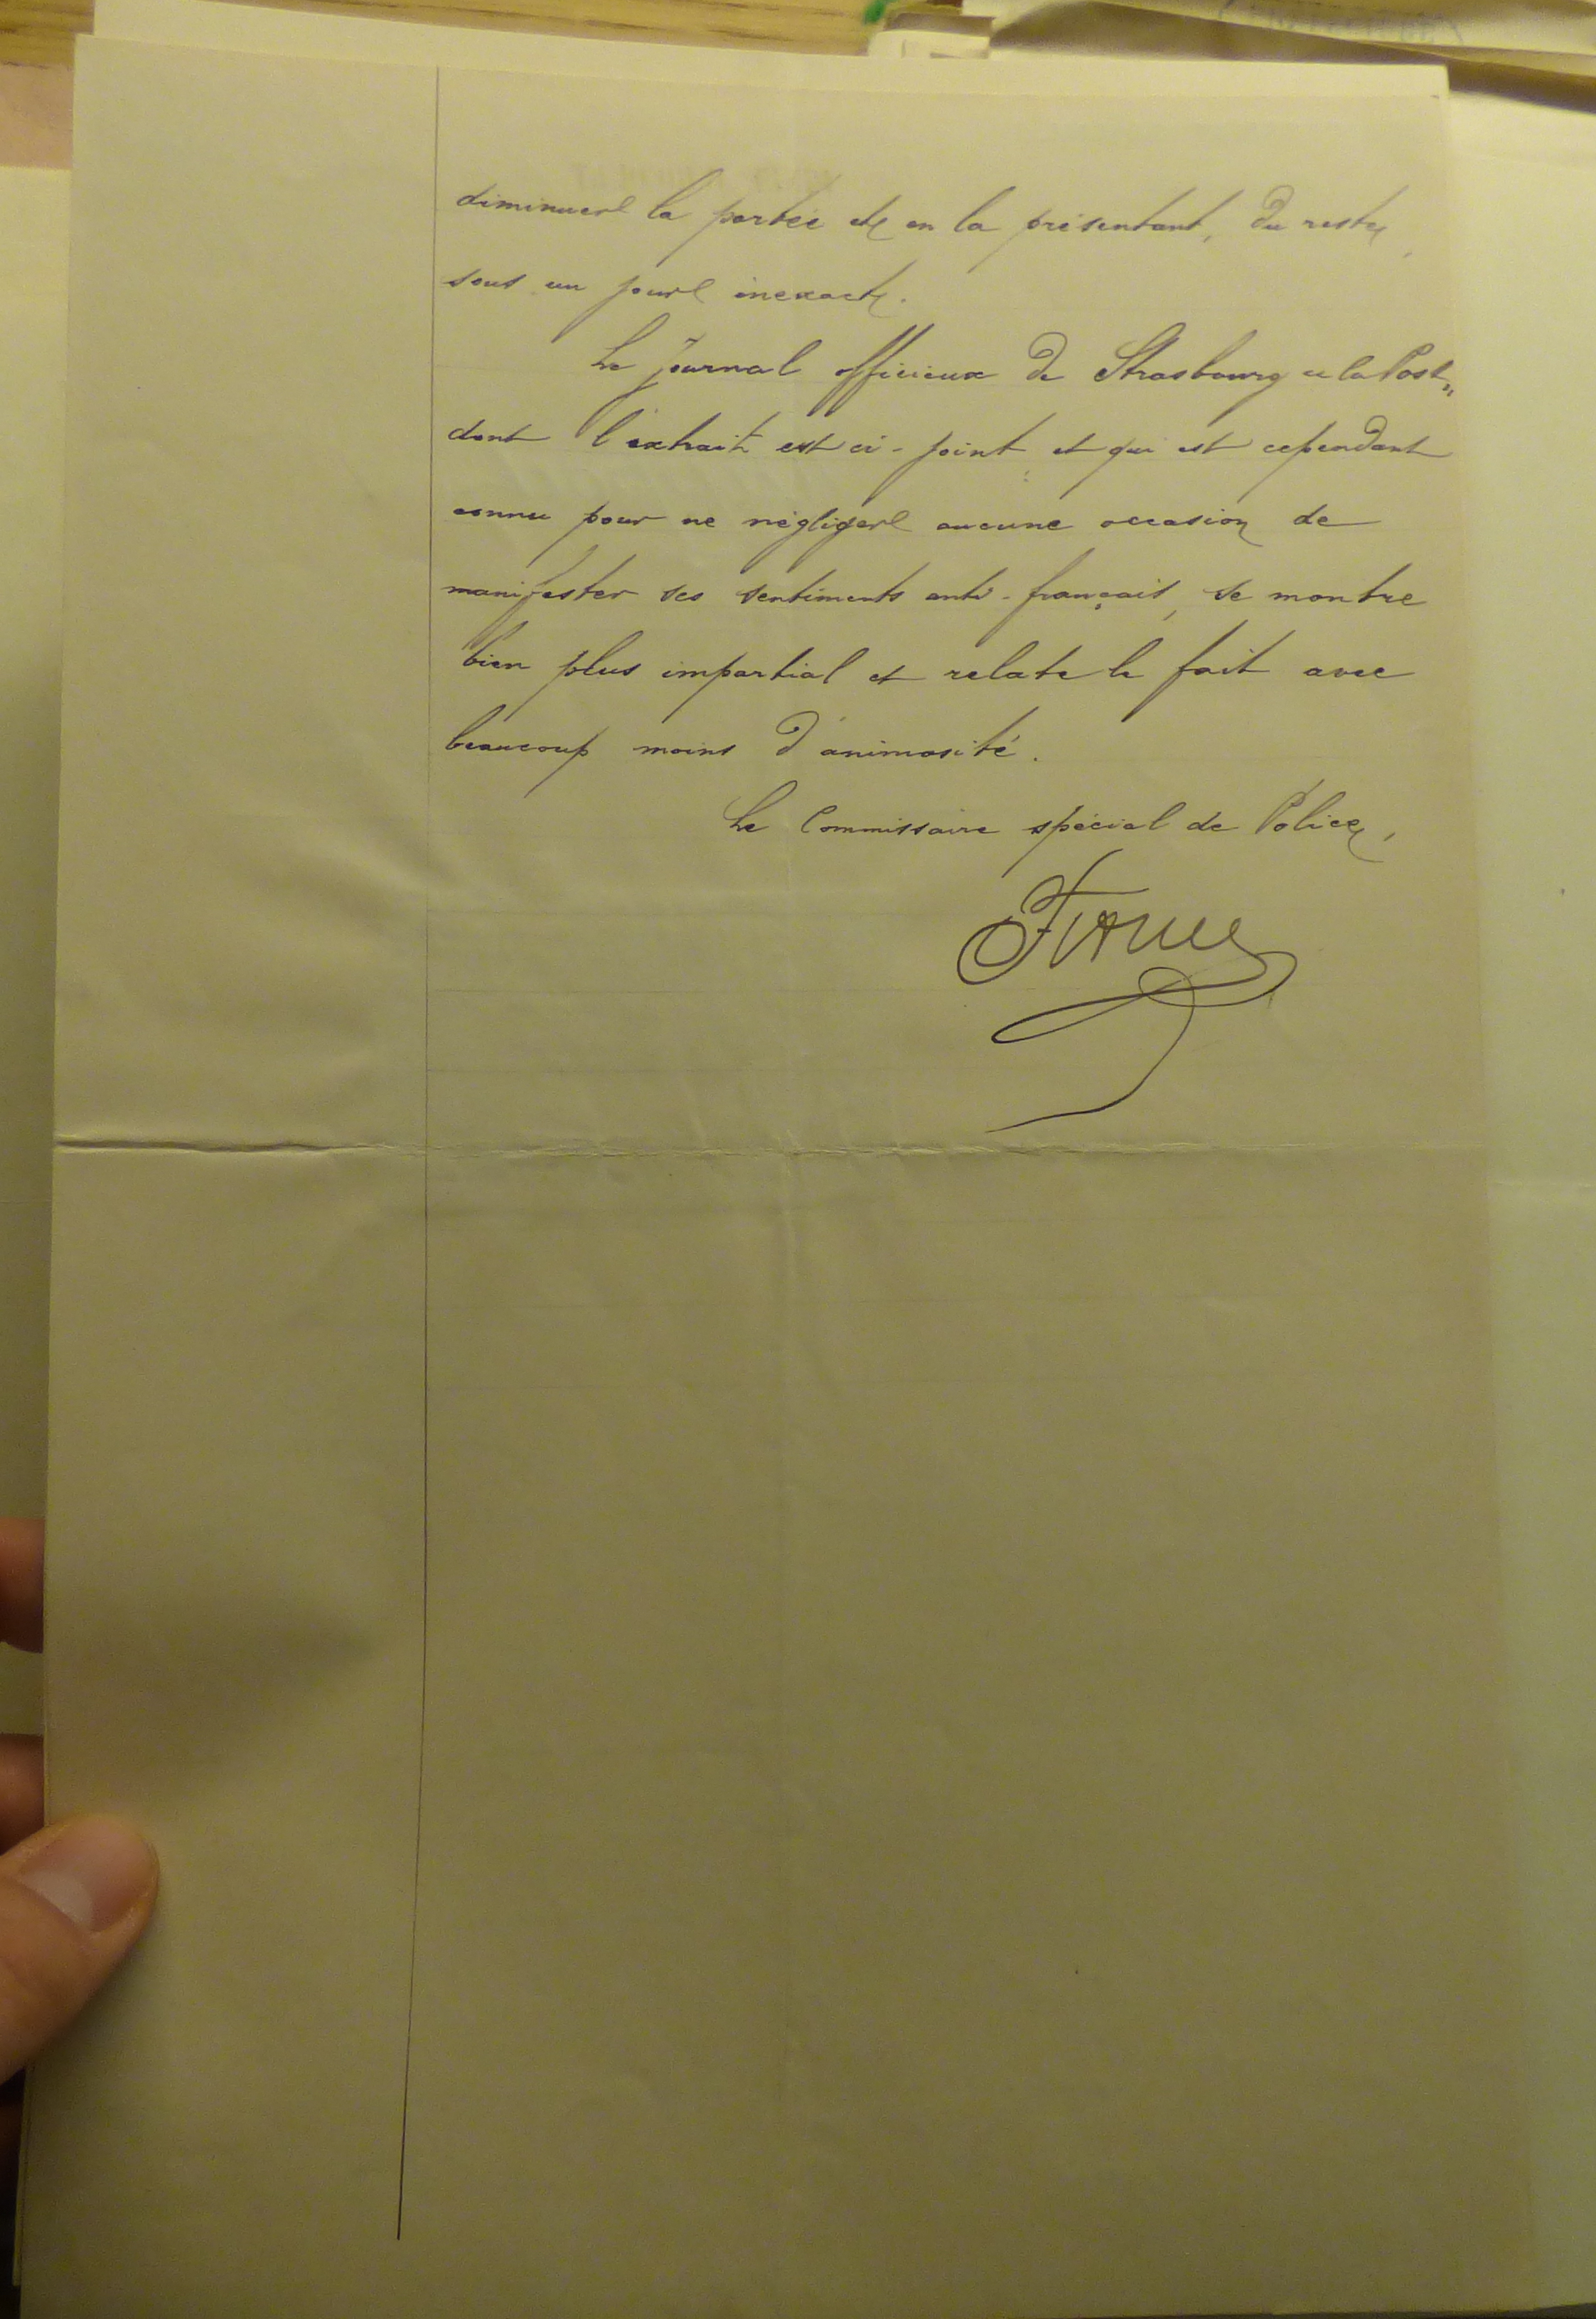 diminuer la portée et en la présentant, du reste,
sous un jour inexact.
Le Journal officieux de Strasbourg « la Post »
dont l'extrait est ci-joint et qui est cependant
connu pour ne négliger aucune occasion de
manifester ses sentiments anti-français, se montre
bien plus impartial et relate le fait avec
beaucoup moins d'animosité.
Le Commissaire spécial de Police,